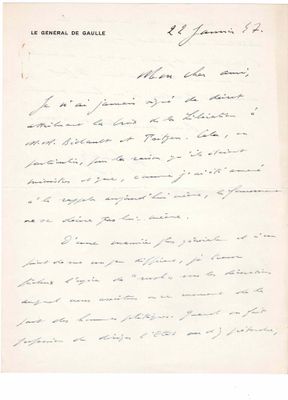 LE GÉNÉRAL DE GAULLE
22 Janvier 47.
Mon cher ami,
Je n'ai jamais signé de décret
attribuant la Croix de la Libération à
M.M. Bidault et Teitgen. Cela, en
particulier, pour la raison qu'ils étaient
ministres et que, comme j'ai été amené
à le rappeler aujourd'hui même, le gouvernement
ne se décore pas lui-même.
D'une manière plus générale et à un
point de vue un peu différent, je trouve
l'espèce de "ruée" sur les décorations
à laquelle nous assistons en ce moment de la
part des hommes politiques. Quand on fait
profession de diriger l'Etat ou d'y prétendre,